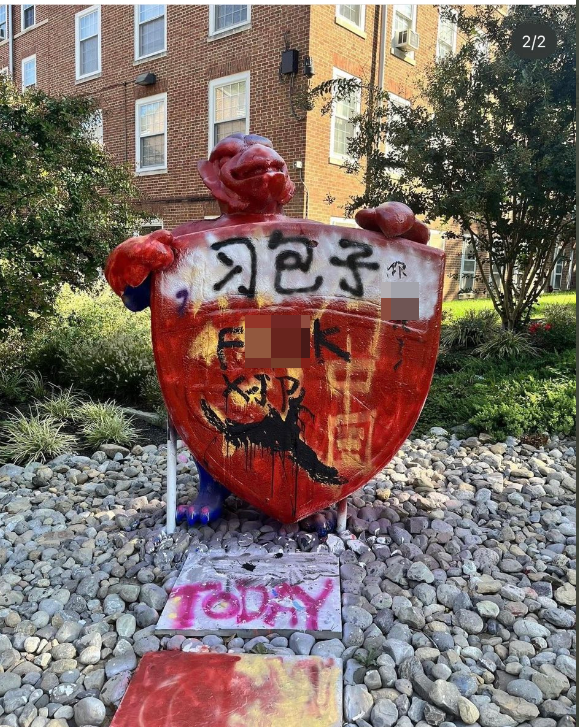 2/2
习包子
F K
XJP
中国
TODAY